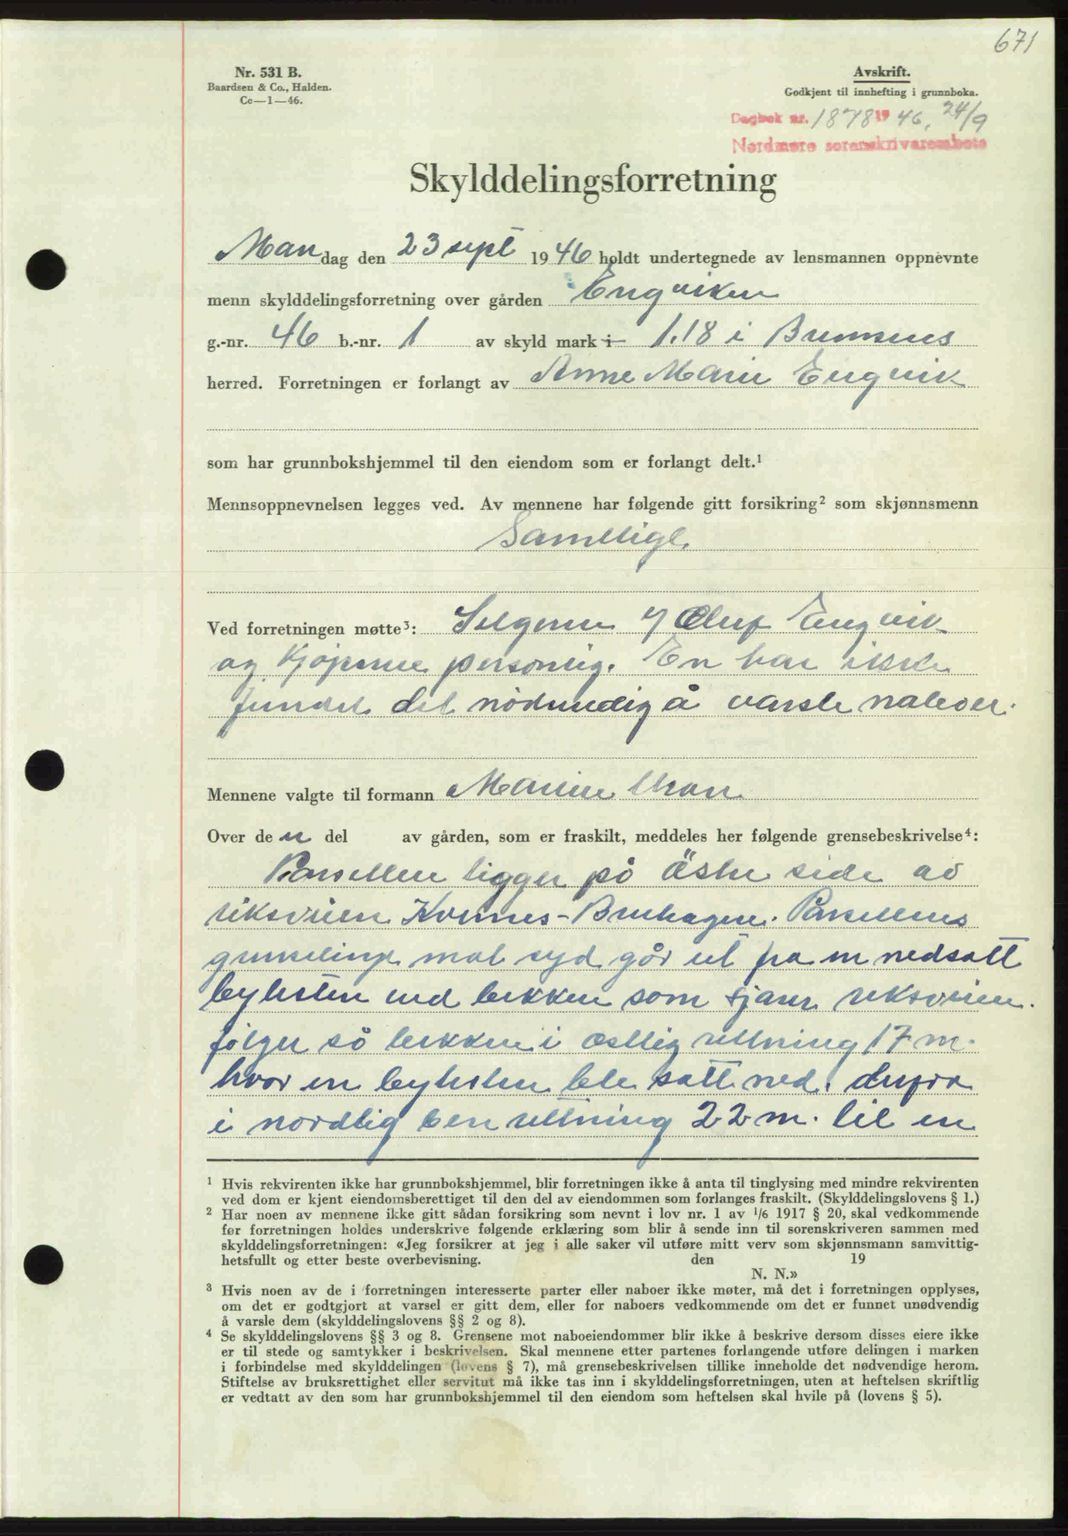 671
Nr. 531 B.
Baardsen & Co., Halden.
Cc—1—46.
Avskrift.
Godkjent til innhefting i grunnboka.
Dagbok nr. 1878 19 46, 24/9
Nordmøre sorenskrivarembete
Skylddelingsforretning
Mandag den 23 sept 1946 holdt undertegnede av lensmannen oppnevnte
menn skylddelingsforretning over gården Engviken
g.-nr. 46 b.-nr. 1 av skyld mark i 1.18 i Bremsnes
herred. Forretningen er forlangt av Anne Marie Engvik
som har grunnbokshjemmel til den eiendom som er forlangt delt.¹
Mennsoppnevnelsen legges ved. Av mennene har følgende gitt forsikring² som skjønnsmenn
Samtlige
Ved forretningen møtte³: Selgeren v/ Oluf Engvik
og kjøperne personlig. En har ikke
fundet det nödvendig å varsle naboer.
Mennene valgte til formann
Over de n del av gården, som er fraskilt, meddeles her følgende grensebeskrivelse⁴:
Parsellen ligger på östre side av
riksveien Kvernes-Bruhagen. Parsellens
grenselinje mot syd går ut fra en nedsatt
bytesten ved bekken som skjærer riksveien.
følger så bekken i østlig rettning 17 m.
hvor en bytesten ble satt ned. derfra
i nordlig ben rettning 22 m. til en
¹ Hvis rekvirenten ikke har grunnbokshjemmel, blir forretningen ikke å anta til tinglysing med mindre rekvirenten
ved dom er kjent eiendomsberettiget til den del av eiendommen som forlanges fraskilt. (Skylddelingslovens § 1.)
² Har noen av mennene ikke gitt sådan forsikring som nevnt i lov nr. 1 av 1/6 1917 § 20, skal vedkommende
før forretningen holdes underskrive følgende erklæring som blir å sende inn til sorenskriveren sammen med
skylddelingsforretningen: «Jeg forsikrer at jeg i alle saker vil utføre mitt verv som skjønnsmann samvittig-
hetsfullt og etter beste overbevisning. den 19
N. N.»
³ Hvis noen av de i forretningen interesserte parter eller naboer ikke møter, må det i forretningen opplyses,
om det er godtgjort at varsel er gitt dem, eller for naboers vedkommende om det er funnet unødvendig
å varsle dem (skylddelingslovens §§ 2 og 8).
⁴ Se skylddelingslovens §§ 3 og 8. Grensene mot naboeiendommer blir ikke å beskrive dersom disses eiere ikke
er til stede og samtykker i beskrivelsen. Skal mennene etter partenes forlangende utføre delingen i marken
i forbindelse med skylddelingen (lovens § 7), må grensebeskrivelsen tillike inneholde det nødvendige herom.
Stiftelse av bruksrettighet eller servitut må ikke tas inn i skylddelingsforretningen, uten at heftelsen skriftlig
er vedtatt av den som har grunnbokshjemmel til den eiendom som heftelsen skal hvile på (lovens § 5).